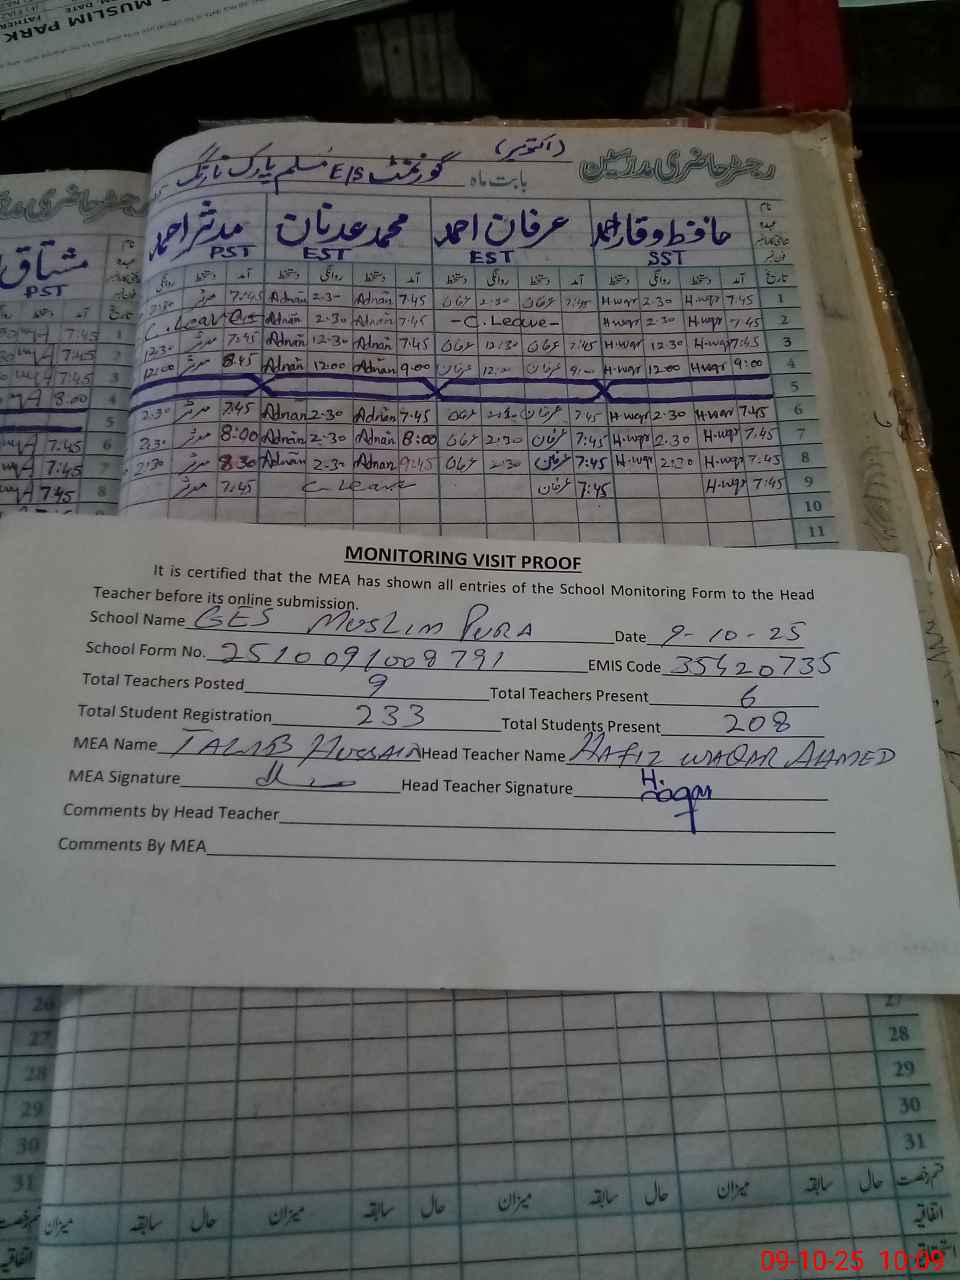 MUSLIM PARK
FATHER
رجسٹر حاضری مدرسین
بابت ماہ (اکتوبر) گورنمنٹ E/S مسلم پارک نارنگ
حافظ وقار احمد عرفان احمد محمد عدنان مدثر احمد مشتاق
SST EST EST PST PST
تاریخ آمد دستخط روانگی دستخط آمد دستخط روانگی دستخط آمد دستخط روانگی دستخط آمد دستخط روانگی
1 7.45 H.wqr 2.30 H.wqr 7.45 عرفان 2.30 عرفان 7.45 Adnan 2.30 Adnan 7.45 مدثر 2.30
2 7.45 H.wqr 2.30 H.wqr -C.Leave- 7.45 Adnan 2.30 Adnan C.Leave
3 7.45 H.wqr 12.30 H.wqr 7.45 عرفان 12.30 عرفان 7.45 Adnan 12.30 Adnan 7.45 مدثر 12.30
4 9:00 H.wqr 12.00 H.wqr 9:00 عرفان 12:00 عرفان 9.00 Adnan 12.00 Adnan 8.45 مدثر 12:00
5
6 7.45 H.wqr 2.30 H.wqr 7.45 عرفان 2.30 عرفان 7.45 Adnan 2.30 Adnan 7.45 مدثر 2.30
7 7.45 H.wqr 2.30 H.wqr 7:45 عرفان 2.30 عرفان 8:00 Adnan 2.30 Adnan 8:00 مدثر 2.30
8 7.45 H.wqr 2.30 H.wqr 7:45 عرفان 2.30 عرفان 9:45 Adnan 2.30 Adnan 8.30 مدثر 2.30
9 7.45 H.wqr 7:45 عرفان C Leave 7.45 مدثر
10
11
MONITORING VISIT PROOF
It is certified that the MEA has shown all entries of the School Monitoring Form to the Head
Teacher before its online submission.
School Name GES MUSLIM PURA Date 9-10-25
School Form No. 2510091008791 EMIS Code 35420735
Total Teachers Posted 9 Total Teachers Present 6
Total Student Registration 233 Total Students Present 208
MEA Name TALIB HUSSAIN Head Teacher Name HAFIZ WAQAR AHMED
MEA Signature Head Teacher Signature H.
Comments by Head Teacher
Comments By MEA
26 27
27 28
28 29
29 30
30 31
31 قسم رخصت حال سابقہ میزان حال سابقہ میزان حال سابقہ میزان
قسم رخصت حال سابقہ میزان اتفاقیہ
اتفاقیہ
09-10-25 10:09